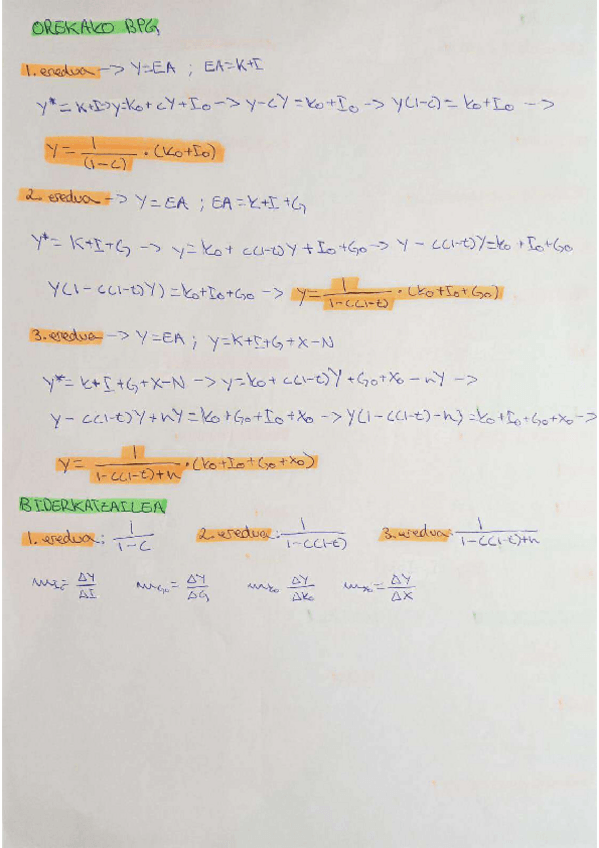 OREKAKO BPG
1. eredua -> Y=EA ; EA=K+I
Y*= K+I -> Y=K₀+cY+I₀ -> Y-cY=K₀+I₀ -> Y(1-c)=K₀+I₀ ->
Y= 1/(1-c) · (K₀+I₀)
2. eredua -> Y=EA ; EA=K+I+G
Y*= K+I+G -> Y=K₀+c(1-t)Y+I₀+G₀ -> Y-c(1-t)Y=K₀+I₀+G₀
Y(1-c(1-t)Y)=K₀+I₀+G₀ -> Y= 1/1-c(1-t) · (K₀+I₀+G₀)
3. eredua -> Y=EA ; Y=K+I+G+X-N
Y*= K+I+G+X-N -> Y=K₀+c(1-t)Y+G₀+X₀-nY ->
Y-c(1-t)Y+nY=K₀+G₀+I₀+X₀ -> Y(1-c(1-t)-n)=K₀+I₀+G₀+X₀ ->
Y= 1/1-c(1-t)+n · (K₀+I₀+G₀+X₀)
BIDERKATZAILEA
1. eredua: 1/1-c 2. eredua: 1/1-c(1-t) 3. eredua: 1/1-c(1-t)+n
m_I₀= ΔY/ΔI m_G₀= ΔY/ΔG m_K₀ ΔY/ΔK₀ m_X₀= ΔY/ΔX